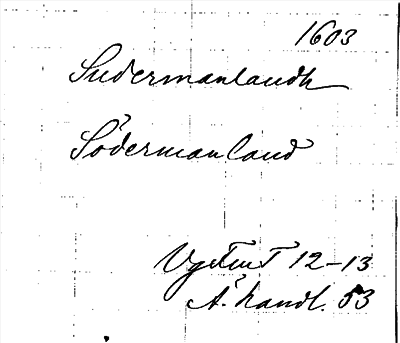 1603
Sudermanlandh
Södermanland
12-13
Å. handl. 53